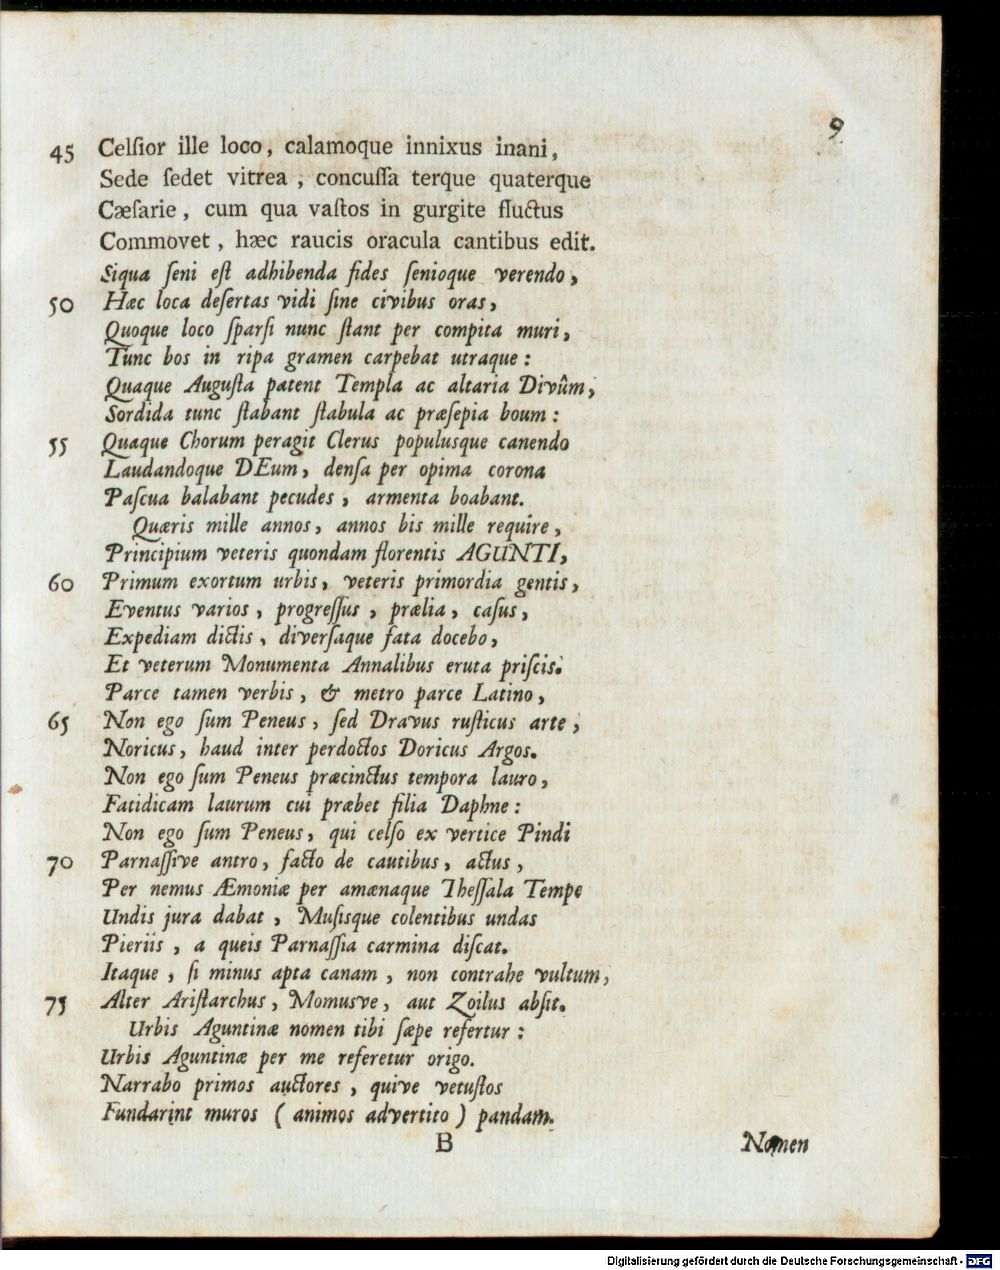 9
45 Celſior ille loco, calamoque innixus inani,
Sede ſedet vitrea, concuſſa terque quaterque
Cæſarie, cum qua vaſtos in gurgite fluctus
Commovet, hæc raucis oracula cantibus edit.
Siqua ſeni eſt adhibenda fides ſenioque verendo,
50 Hæc loca deſertas vidi ſine civibus oras,
Quoque loco ſparſi nunc ſtant per compita muri,
Tunc bos in ripa gramen carpebat utraque:
Quaque Auguſta patent Templa ac altaria Divûm,
Sordida tunc ſtabant ſtabula ac præſepia boum:
55 Quaque Chorum peragit Clerus populusque canendo
Laudandoque DEum, denſa per opima corona
Paſcua balabant pecudes, armenta boabant.
Quæris mille annos, annos bis mille require,
Principium veteris quondam florentis AGUNTI,
60 Primum exortum urbis, veteris primordia gentis,
Eventus varios, progreſſus, prælia, caſus,
Expediam dictis, diverſaque fata docebo,
Et veterum Monumenta Annalibus eruta priſcis.
Parce tamen verbis, & metro parce Latino,
65 Non ego ſum Peneus, ſed Dravus ruſticus arte,
Noricus, haud inter perdoctos Doricus Argos.
Non ego ſum Peneus præcinctus tempora lauro,
Fatidicam laurum cui præbet filia Daphne:
Non ego ſum Peneus, qui celſo ex vertice Pindi
70 Parnaſſive antro, facto de cautibus, actus,
Per nemus Æmoniæ per amænaque Theſſala Tempe
Undis jura dabat, Muſisque colentibus undas
Pieriis, a queis Parnaſſia carmina diſcat.
Itaque, ſi minus apta canam, non contrahe vultum,
75 Alter Ariſtarchus, Momusve, aut Zoilus abſit.
Urbis Aguntinæ nomen tibi ſæpe refertur:
Urbis Aguntinæ per me referetur origo.
Narrabo primos auctores, quive vetuſtos
Fundarint muros (animos advertito) pandam.
B Nomen
Digitalisierung gefördert durch die Deutsche Forschungsgemeinschaft - DFG